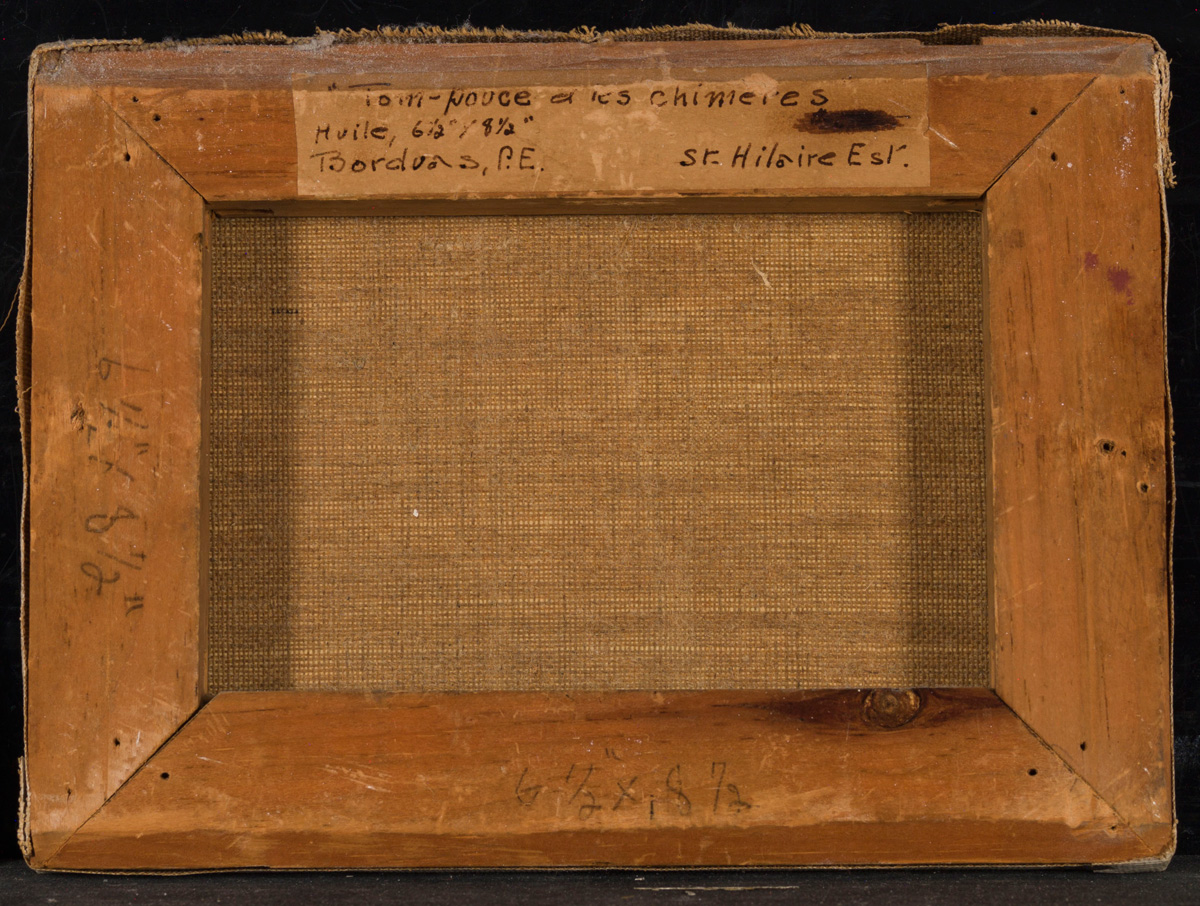 " Tom-pouce et les chimères
Huile, 6½" x 8½"
Borduas, P.E. St. Hilaire Est.
6 ½" x 8 ½"
6 ½" x 8 ½